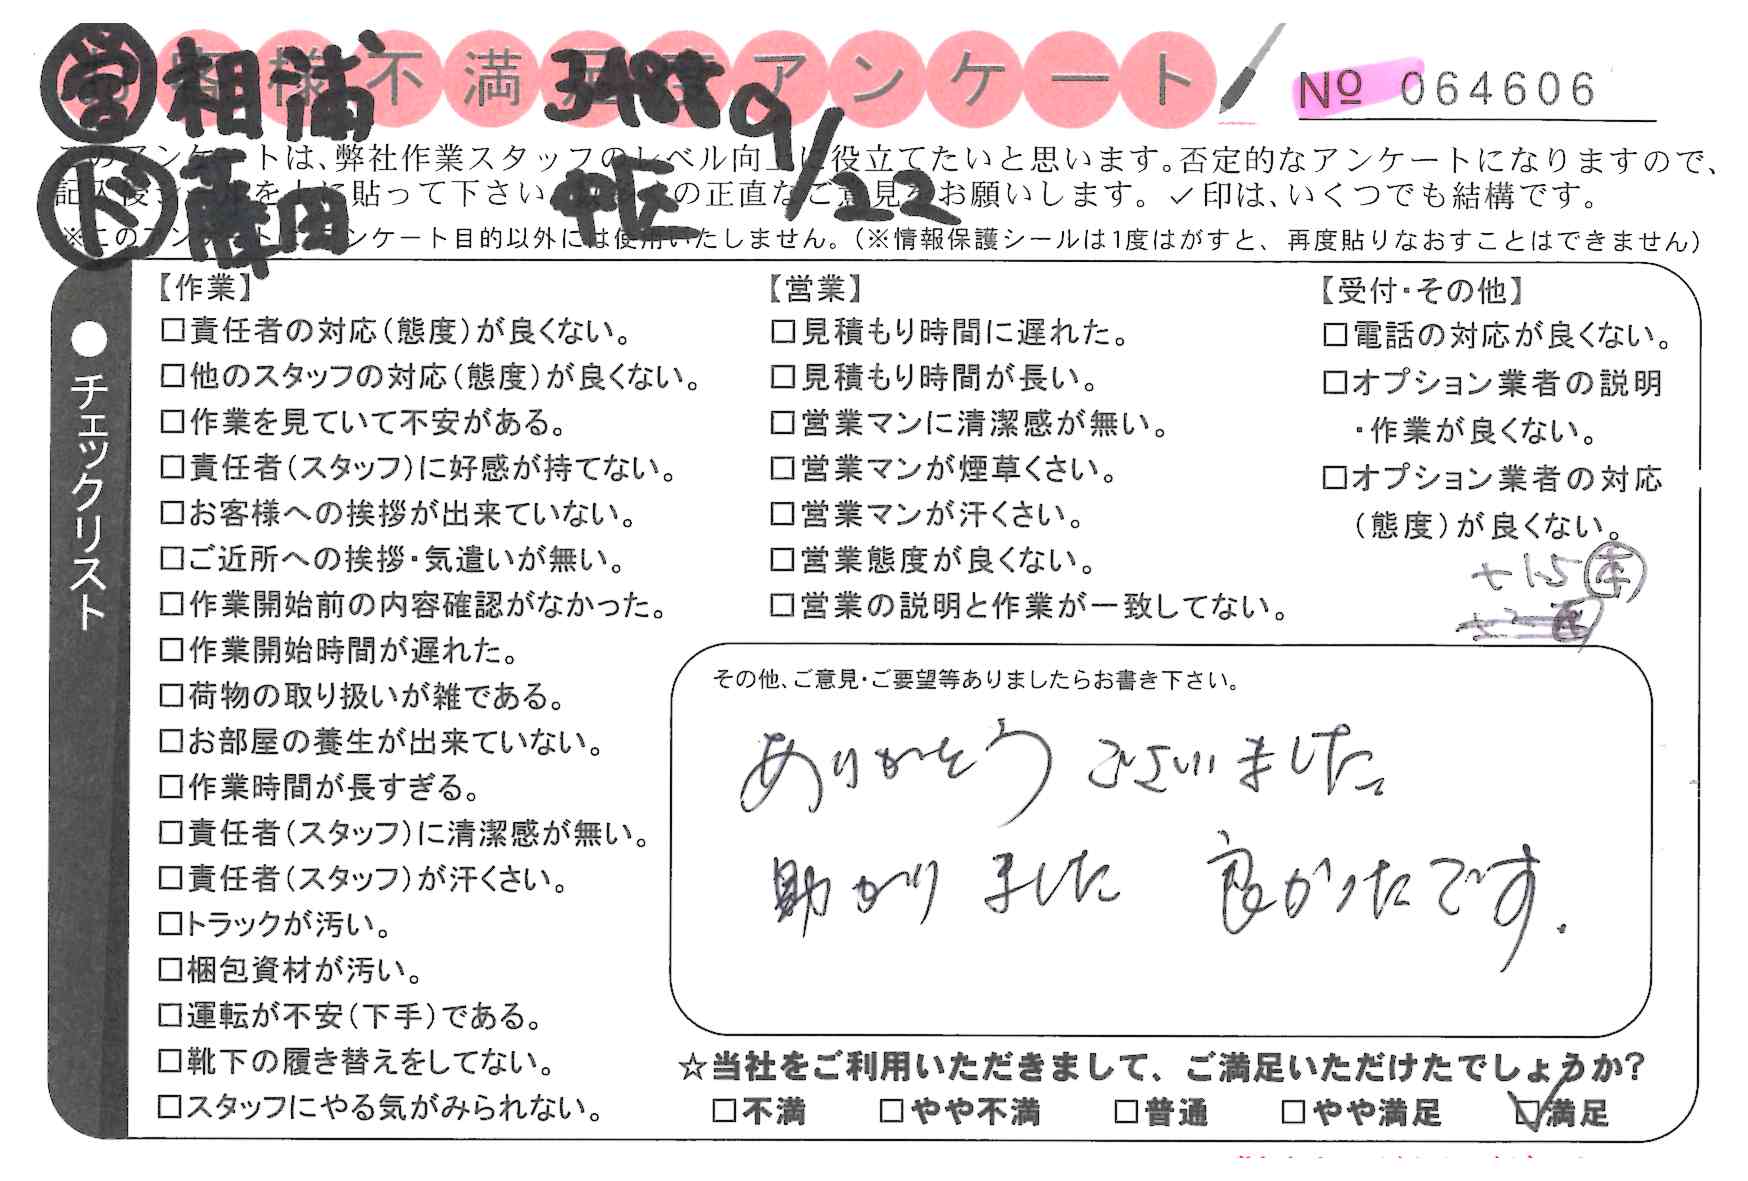 営 相浦 様不満足度アンケート 9/22 № 064606
このアンケートは、弊社作業スタッフのレベル向上に役立てたいと思います。否定的なアンケートになりますので、
を上に貼って下さい の正直なご意見をお願いします。✓印は、いくつでも結構です。
ド
※このアンケートは アンケート目的以外には使用いたしません。(※情報保護シールは1度はがすと、再度貼りなおすことはできません)
●チェックリスト
【作業】
□責任者の対応(態度)が良くない。
□他のスタッフの対応(態度)が良くない。
□作業を見ていて不安がある。
□責任者(スタッフ)に好感が持てない。
□お客様への挨拶が出来ていない。
□ご近所への挨拶・気遣いが無い。
□作業開始前の内容確認がなかった。
□作業開始時間が遅れた。
□荷物の取り扱いが雑である。
□お部屋の養生が出来ていない。
□作業時間が長すぎる。
□責任者(スタッフ)に清潔感が無い。
□責任者(スタッフ)が汗くさい。
□トラックが汚い。
□梱包資材が汚い。
□運転が不安(下手)である。
□靴下の履き替えをしてない。
□スタッフにやる気がみられない。
【営業】
□見積もり時間に遅れた。
□見積もり時間が長い。
□営業マンに清潔感が無い。
□営業マンが煙草くさい。
□営業マンが汗くさい。
□営業態度が良くない。
□営業の説明と作業が一致してない。
【受付・その他】
□電話の対応が良くない。
□オプション業者の説明
・作業が良くない。
□オプション業者の対応
(態度)が良くない。
+1.5
その他、ご意見・ご要望等ありましたらお書き下さい。
ありがとうございました。
助かりました 良かったです.
☆当社をご利用いただきまして、ご満足いただけたでしょうか?
□不満 □やや不満 □普通 □やや満足 ☑満足